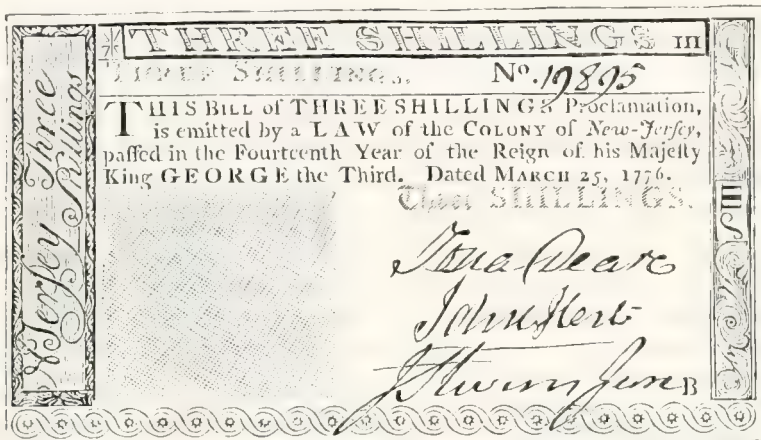 THREE SHILLINGS III
THREE SHILLINGS.
No. 19895
THIS BILL of THREE SHILLINGS Proclamation,
is emitted by a LAW of the COLONY of New-Jerſey,
paſſed in the Fourteenth Year of the Reign of his Majeſty
King GEORGE the Third. Dated MARCH 25, 1776.
Three SHILLINGS.
Jona Deare
John
Jun B
Jerſey Three
Shillings
III S